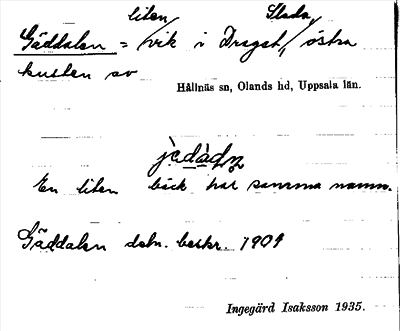 liten Slada
Gäddalen = vik i Dragst, östra
kusten av
Hållnäs sn, Olands hd, Uppsala län.
En liten bäck har samma namn.
Gäddalen dsbr. beskr. 1909
Ingegärd Isaksson 1935.